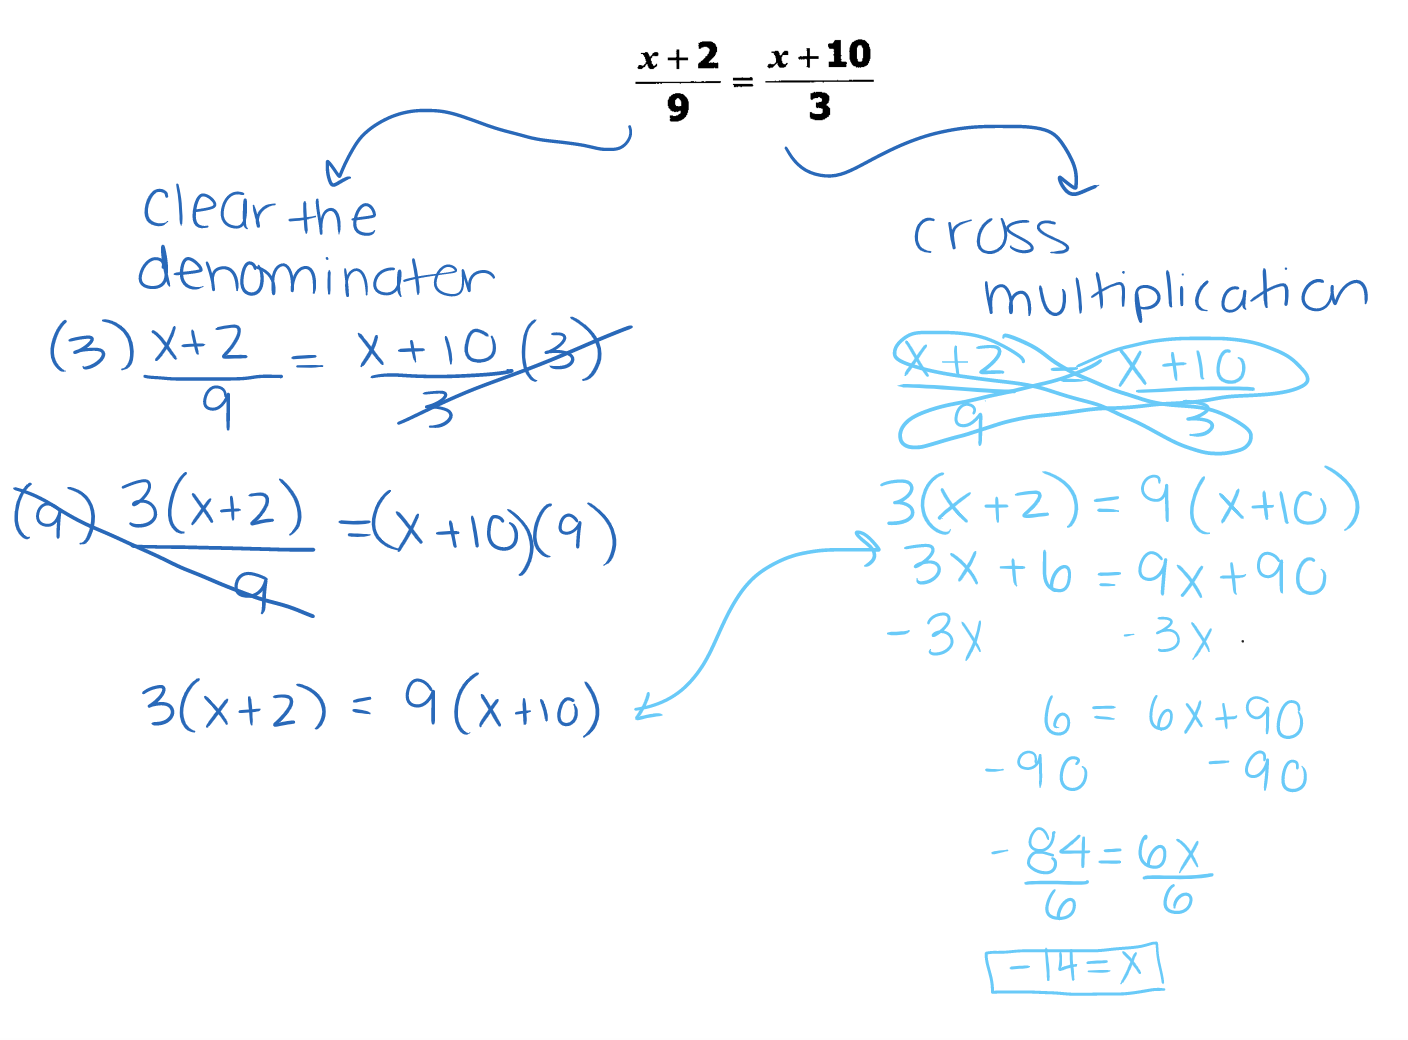 x + 2 / 9 = x + 10 / 3
clear the
denominater
(3) x + 2 / 9 = x + 10 / 3 (3)
(9) 3(x+2) / 9 = (x+10)(9)
3(x+2) = 9(x+10)
cross
multiplication
x+2 / 9 = x+10 / 3
3(x+2) = 9(x+10)
3x + 6 = 9x + 90
-3x -3x
6 = 6x+90
-90 -90
-84 / 6 = 6x / 6
-14 = x